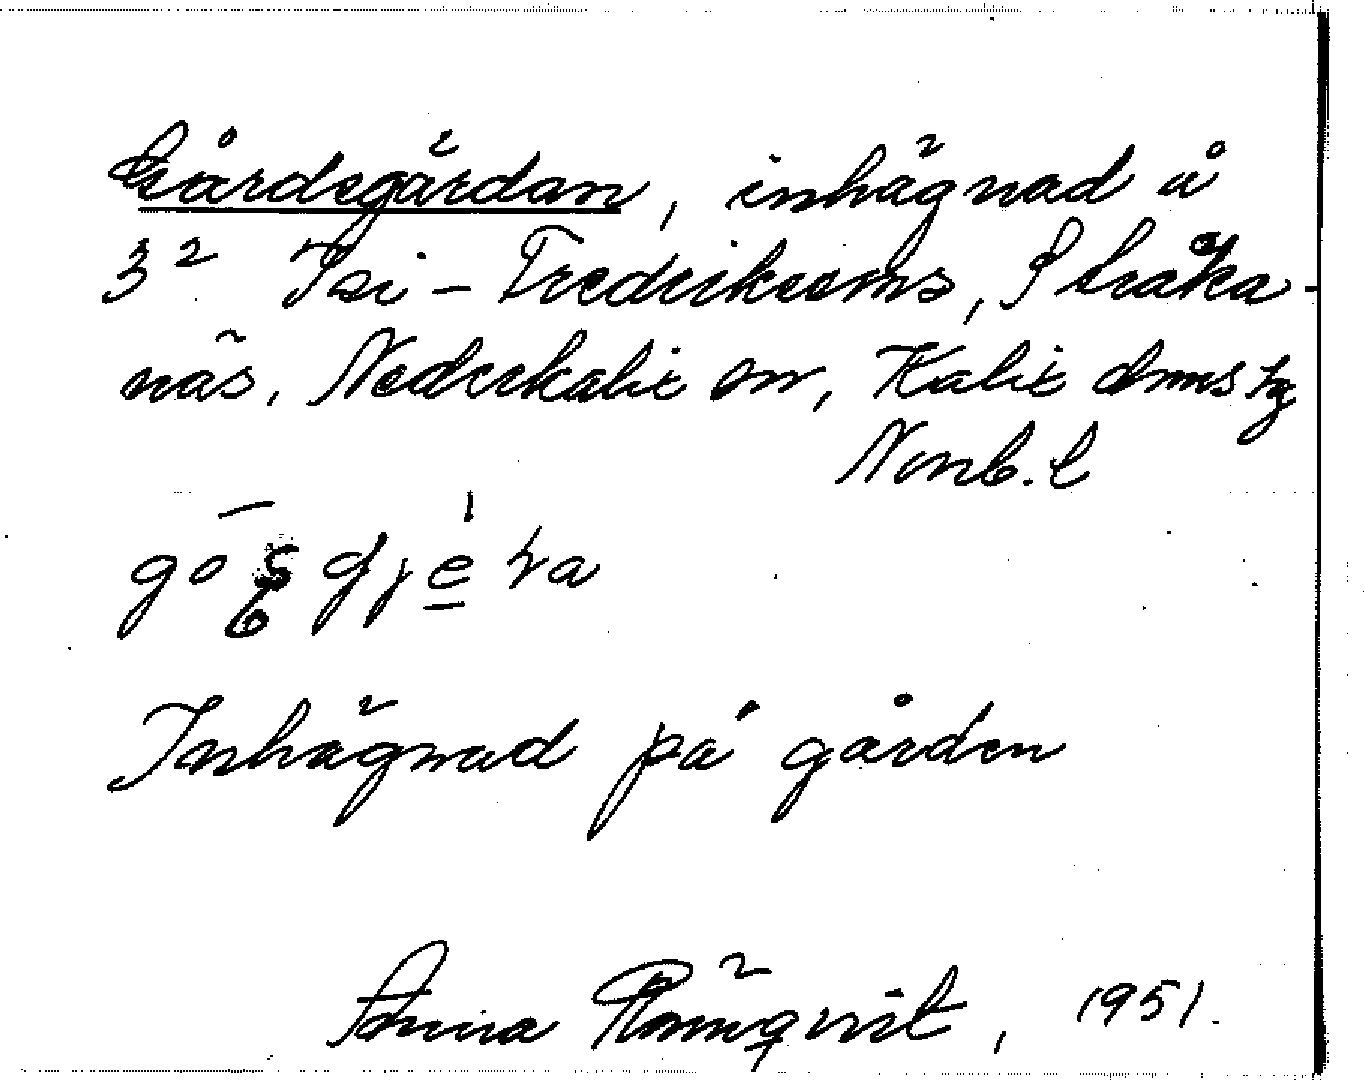 Gårdsgärdan, inhägnad å
3² Isi-Fredriksems, Stråka-
näs, Nederkalix sn, Kalix dmstg
Norrb. l
Inhägnad på gården
Anna Rönnqvist, 1951.